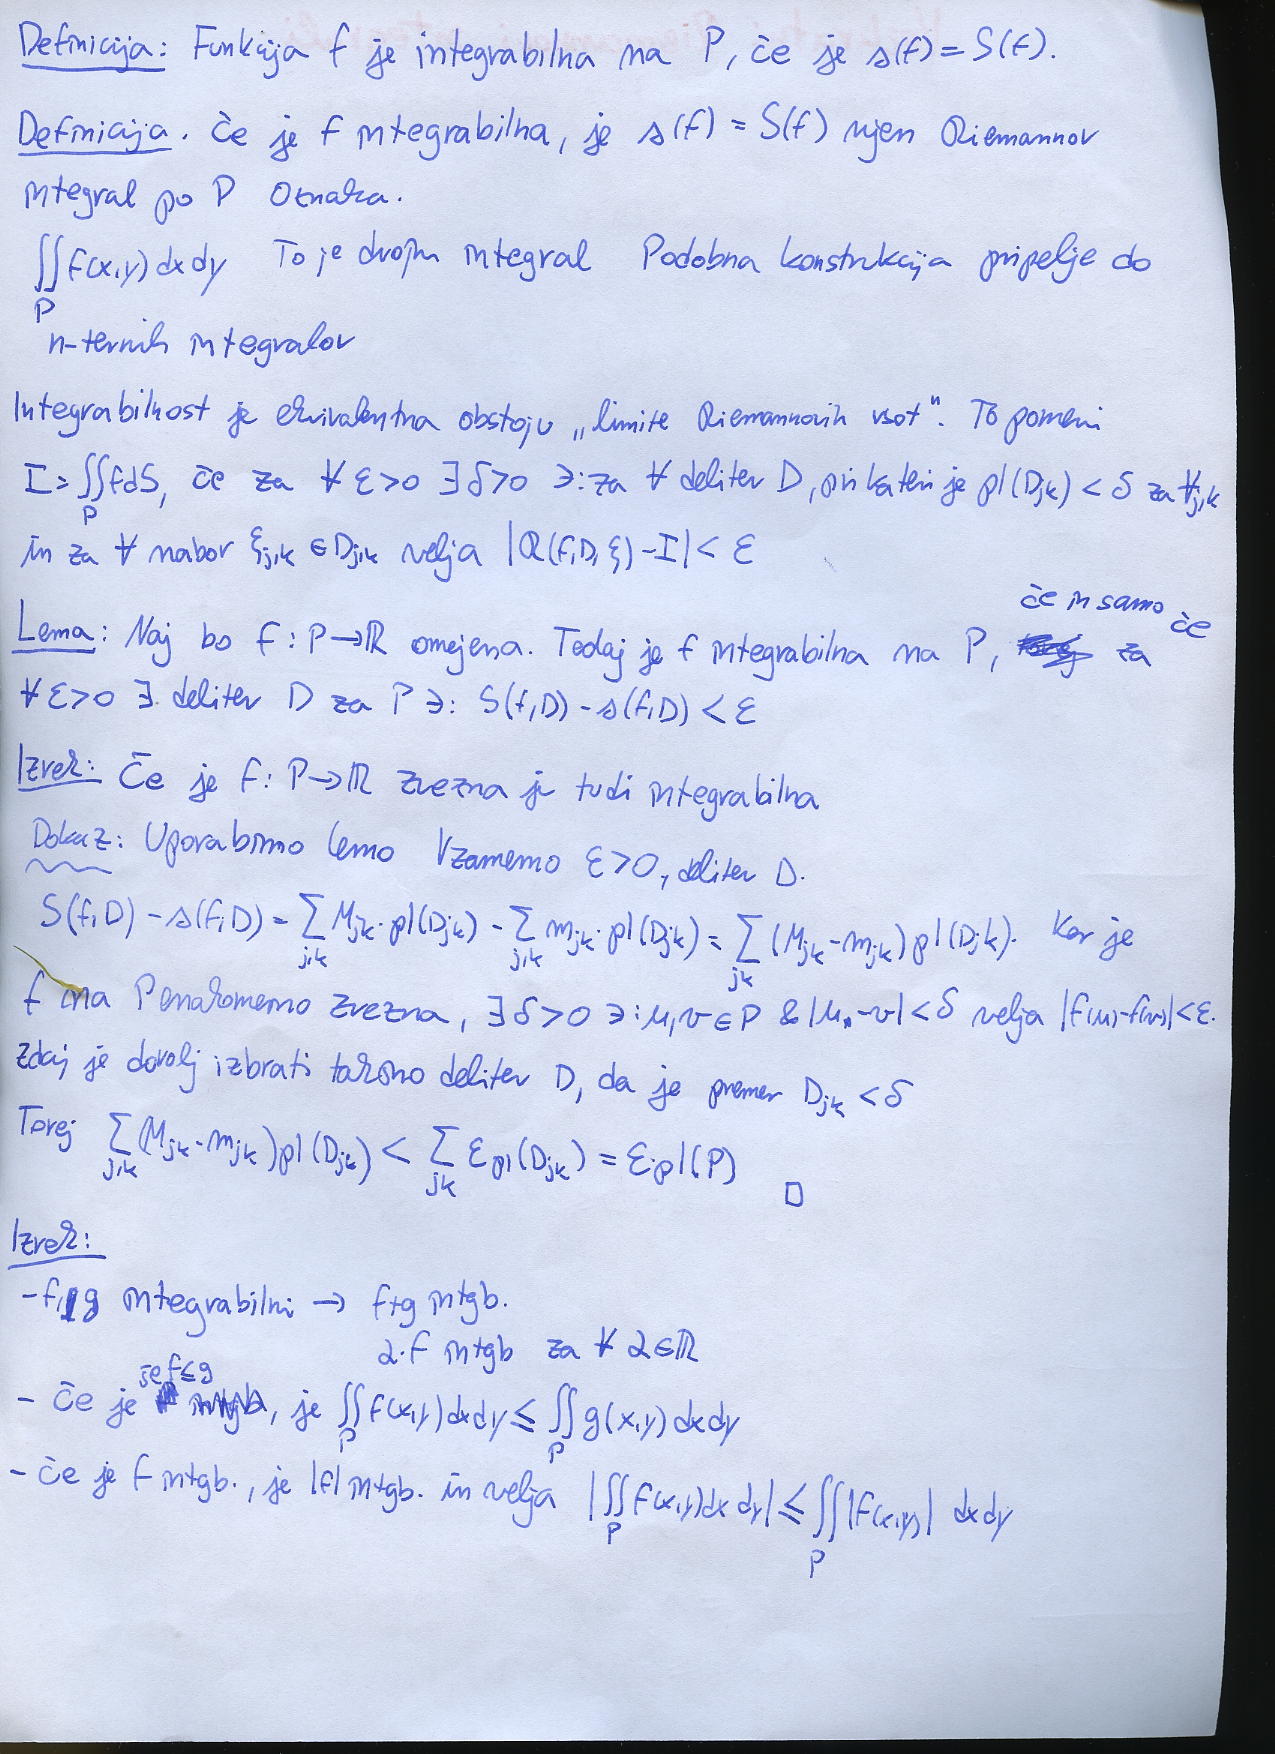 Definicija: Funkcija f je integrabilna na P, če je s(f) = S(f).
Definicija. Če je f integrabilna, je s(f) = S(f) njen Riemannov
integral po P Oznaka.
∬_P f(x,y) dx dy To je dvojni integral Podobna konstrukcija pripelje do
n-ternih integralov
Integrabilnost je ekvivalentna obstoju „limite Riemannovih vsot". To pomeni
I = ∬_P f dS, če za ∀ ε>0 ∃ δ>0 ∋: za ∀ delitev D, pri kateri je pl(D_jk) < δ za ∀ j,k
in za ∀ nabor ξ_j,k ∈ D_j,k velja |R(f,D,ξ) - I| < ε
če in samo če
Lema: Naj bo f: P→ℝ omejena. Tedaj je f integrabilna na P, za
∀ ε>0 ∃. delitev D za P ∋: S(f,D) - s(f,D) < ε
Izrek: Če je f: P→ℝ zvezna je tudi integrabilna
Dokaz: Uporabimo lemo Vzamemo ε>0, delitev D.
S(f,D) - s(f,D) = ∑_{j,k} M_jk · pl(D_jk) - ∑_{j,k} m_jk · pl(D_jk) = ∑_{jk} (M_jk - m_jk) pl(D_jk). Ker je
f na P enakomerno zvezna, ∃ δ>0 ∋: u,v ∈ P & |u - v| < δ velja |f(u) - f(v)| < ε.
Zdaj je dovolj izbrati takšno delitev D, da je premer D_jk < δ
Torej ∑_{j,k} (M_jk - m_jk) pl(D_jk) < ∑_{jk} ε pl(D_jk) = ε·pl(P) □
Izrek:
- f, g integrabilni → f+g intgb.
α·f intgb za ∀ α∈ℝ
je f≤g
- če je, je ∬_P f(x,y) dx dy ≤ ∬_P g(x,y) dx dy
- če je f intgb., je |f| intgb. in velja |∬_P f(x,y) dx dy| ≤ ∬_P |f(x,y)| dx dy